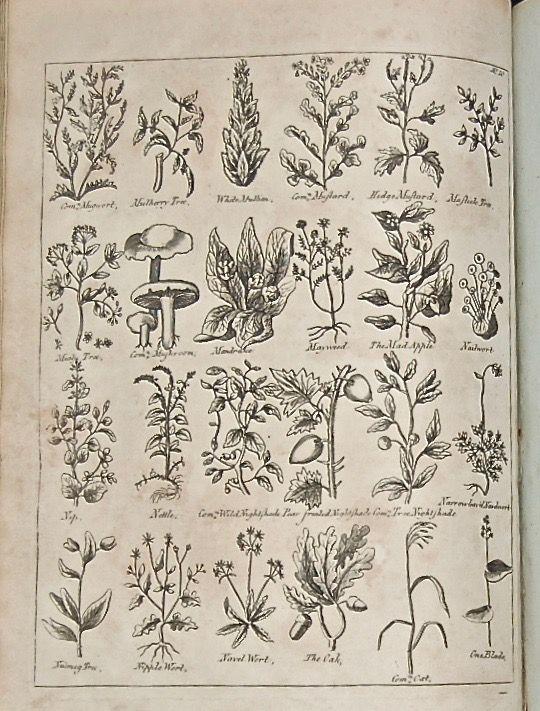 Com.ⁿ Mugwort,
Mulberry Tree.
White Mullein.
Com.ⁿ Mustard.
Hedge Mustard.
Mastick Tree.
Tree,
Com.ⁿ Mushroom.
Mandrake.
Mayweed.
The Mad Apple
Nailwort
Nep.
Nettle.
Com.ⁿ Wild Nightshade
Pear fruited Nightshade
Com.ⁿ Tree Nightshade
Narrow leav'd Nardwort
Nutmeg Tree.
Nipple Wort.
Navel Wort.
The Oak,
Com.ⁿ Oat.
One Blade